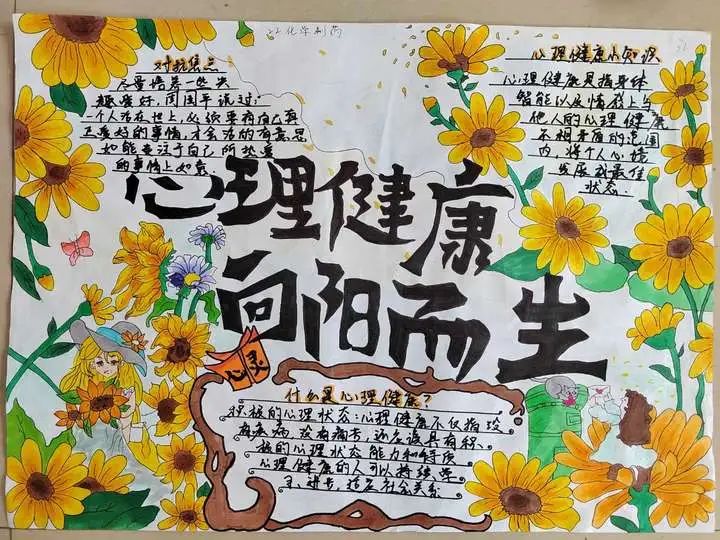 22化学制药
对抗焦点
尽量培养一些兴
趣爱好,周国平说过:
一个人活在世上,必须要有自己真
正爱好的事情,才会活的有意思
如能专注于自己所热爱
的事情上如意.
心理健康小知识
心理健康是指身体
智能以及情感上与
他人的心理健康
不相矛盾的范围
内,将个人心境
发展成最佳
状态.
心理健康
向阳而生
心灵
什么是心理健康?
积极的心理状态:心理健康不仅指没
有疾病,没有痛苦,还应该具有积
极的心理状态能力和特质
心理健康的人可以持续学
习,进步,适应社会关系.